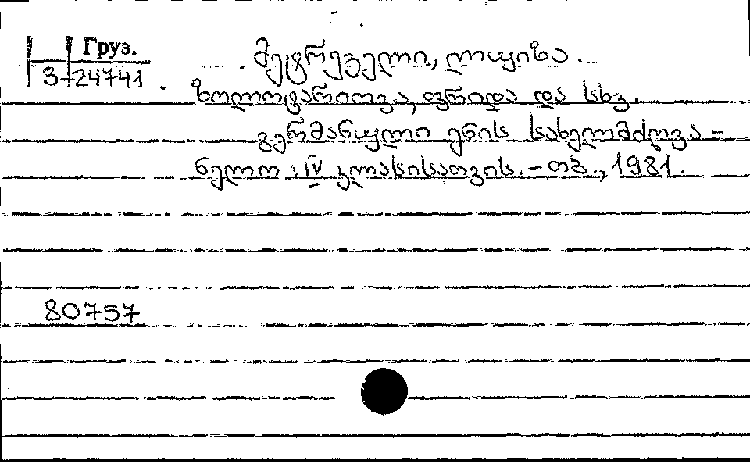 Груз.
3-24741
მეტრეველი, ლუიზა.
ზოლოტარიოვა, ფრიდა და სხვ.
გერმანული ენის სახელმძღვა-
ნელო : IV კლასისათვის. – თბ., 1981.
80757